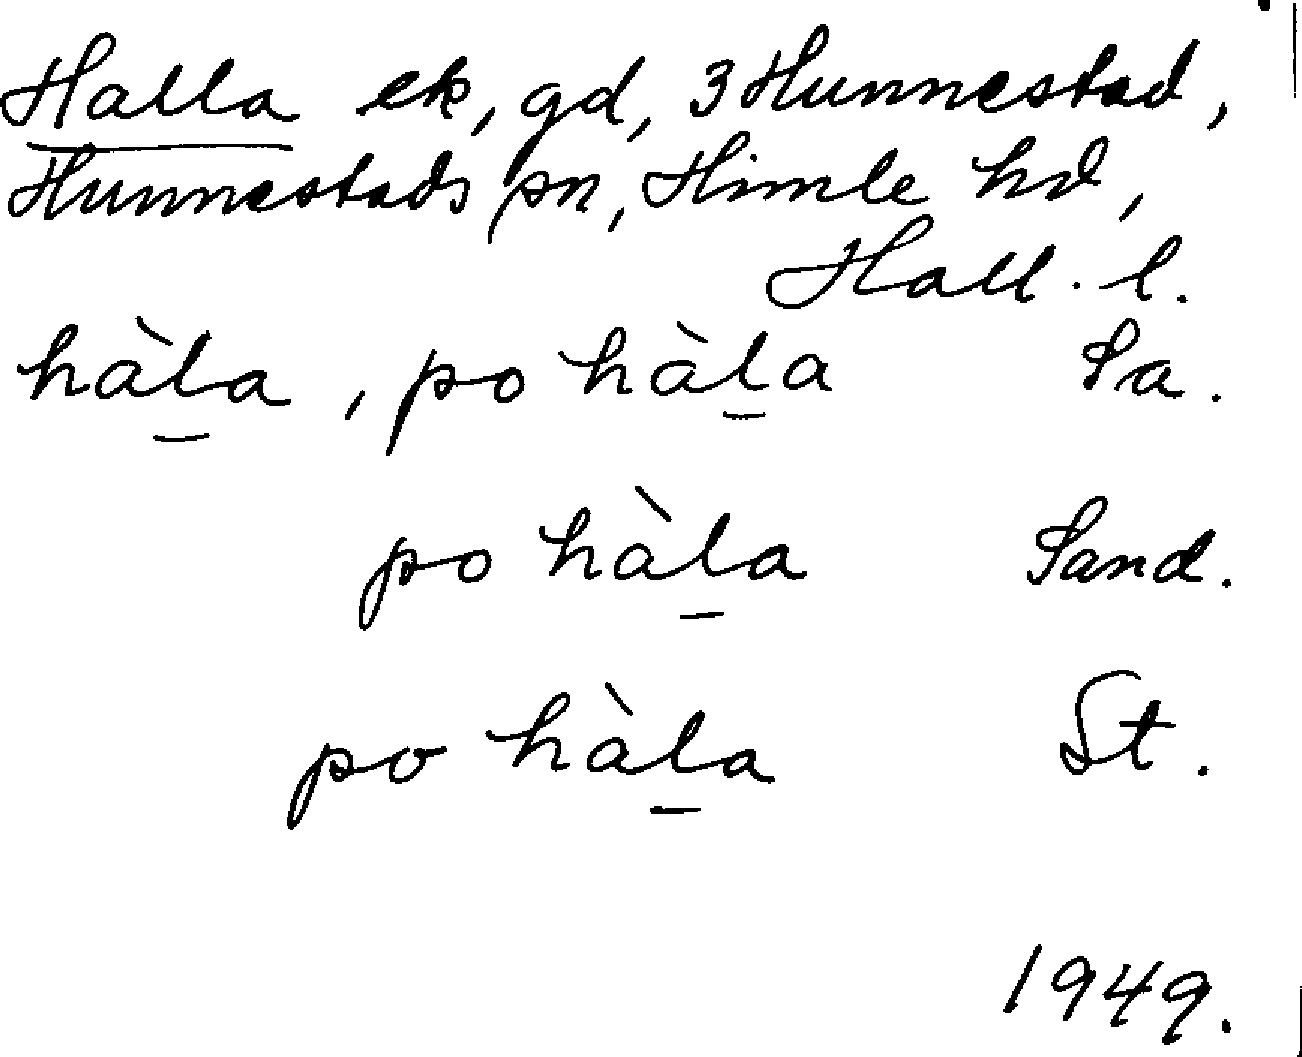 Halla ek, gd, 3 Hunnestad,
Hunnestads sn, Himle hd,
Hall. l.
hàl̠a, po hàl̠a Sa.
po hàl̠a Sand.
po hàl̠a St.
1949.